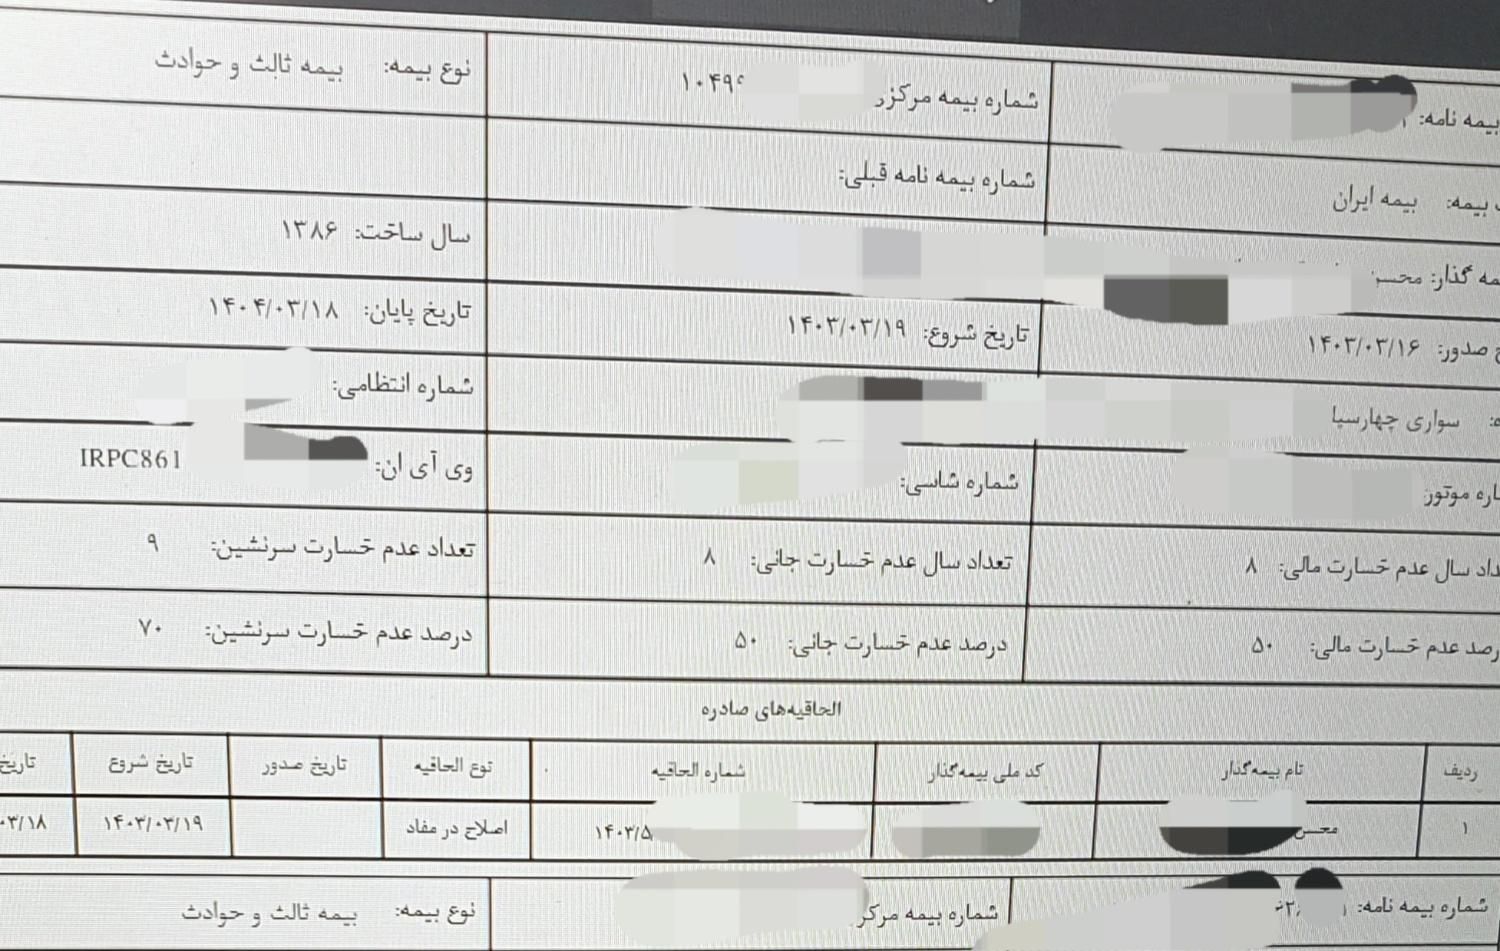 بیمه نامه: شماره بیمه مرکزی ۱۰۴۹۶ نوع بیمه: بیمه ثالث و حوادث
بیمه: بیمه ایران شماره بیمه نامه قبلی:
مه گذار: محسن سال ساخت: ۱۳۸۶
صدور: ۱۴۰۳/۰۳/۱۶ تاریخ شروع: ۱۴۰۳/۰۳/۱۹ تاریخ پایان: ۱۴۰۴/۰۳/۱۸
سواری چهارسیا شماره انتظامی:
اره موتور شماره شاسی: وی آی ان: IRPC861
داد سال عدم خسارت مالی: ۸ تعداد سال عدم خسارت جانی: ۸ تعداد عدم خسارت سرنشین: ۹
رصد عدم خسارت مالی: ۵۰ درصد عدم خسارت جانی: ۵۰ درصد عدم خسارت سرنشین: ۷۰
الحاقیه‌های صادره
ردیف نام بیمه‌گذار کد ملی بیمه‌گذار شماره الحاقیه نوع الحاقیه تاریخ صدور تاریخ شروع تاریخ
۱ محسن ۱۴۰۳/۵ اصلاح در مفاد ۱۴۰۳/۰۳/۱۹ ۰۳/۱۸
شماره بیمه نامه: شماره بیمه مرکز نوع بیمه: بیمه ثالث و حوادث